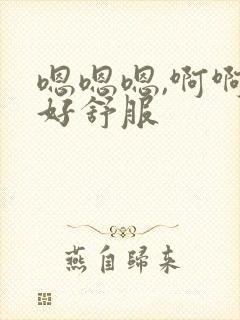 嗯嗯嗯,啊啊
好舒服
燕自归来